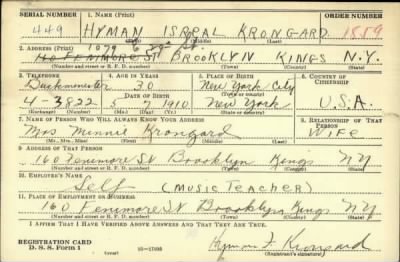 SERIAL NUMBER 1. NAME (Print) ORDER NUMBER
449 HYMAN ISRAEL KRONGARD 1859
(First) (Middle) (Last)
2. ADDRESS (Print) 1079 E 29th St.
160 FENIMORE ST BROOKLYN KINGS N.Y.
(Number and street or R. F. D. number) (Town) (County) (State)
3. TELEPHONE 4. AGE IN YEARS 5. PLACE OF BIRTH 6. COUNTRY OF CITIZENSHIP
30 New York City
DATE OF BIRTH (Town or county)
4-3822 5 7 1910 New York U.S.A.
(Exchange) (Number) (Mo.) (Day) (Yr.) (State or country)
7. NAME OF PERSON WHO WILL ALWAYS KNOW YOUR ADDRESS 8. RELATIONSHIP OF THAT PERSON
Mrs Minnie Krongard Wife
(Mr., Mrs., Miss) (First) (Middle) (Last)
9. ADDRESS OF THAT PERSON
160 Fenimore St Brooklyn Kings NY
(Number and street or R. F. D. number) (Town) (County) (State)
10. EMPLOYER'S NAME
Self (MUSIC TEACHER)
11. PLACE OF EMPLOYMENT OR BUSINESS
160 Fenimore St Brooklyn Kings NY
(Number and street or R. F. D. number) (Town) (County) (State)
I AFFIRM THAT I HAVE VERIFIED ABOVE ANSWERS AND THAT THEY ARE TRUE.
REGISTRATION CARD
D. S. S. Form 1 16-17105 Hyman I Krongard
(Registrant's signature)